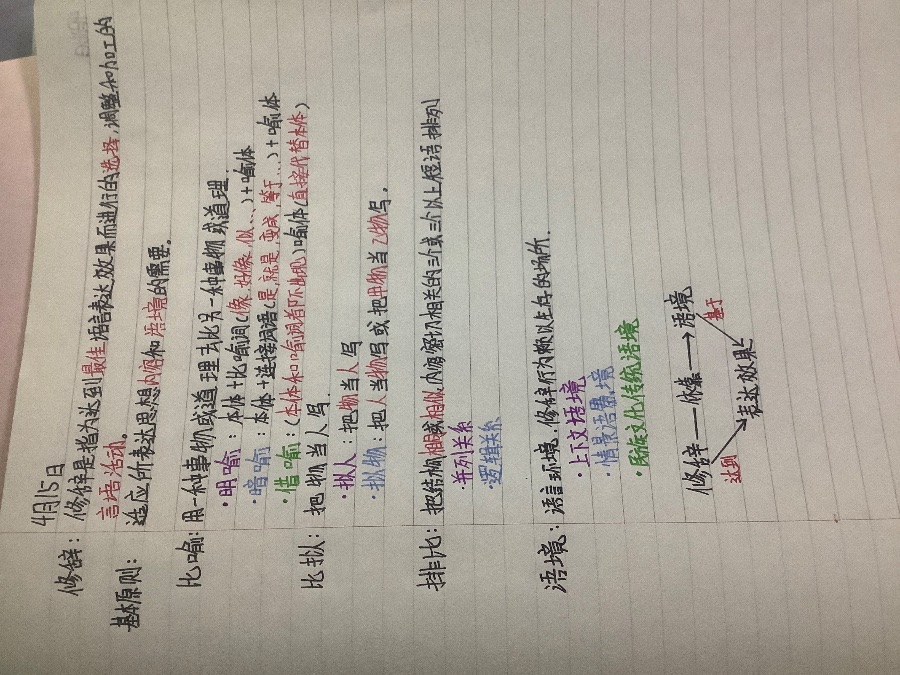 4月15日
修辞：修辞是指为达到最佳语言表达效果而进行的选择,调整和加工的
言语活动。
基本原则：适应所表达思想内容和语境的需要。
比喻：用一种事物或道理去比另一种事物或道理.
·明喻：本体+比喻词(像.好像.似...)+喻体
·暗喻：本体+连接词语(是,就是,变成,等于...)+喻体
·借喻：(本体和喻词都不出现)喻体(直接代替本体)
比拟：把物当人写.
·拟人：把物当人写
·拟物：把人当物写或把甲物当乙物写。
排比：把结构相同或相似,内容密切相关的三个或三个以上短语排列
·并列关系
·逻辑关系
语境：语言环境.修辞行为赖以生存的场所.
·上下文语境
·情景语境
·民族文化传统语境
修辞——依靠→语境
达到 基于
表达效果